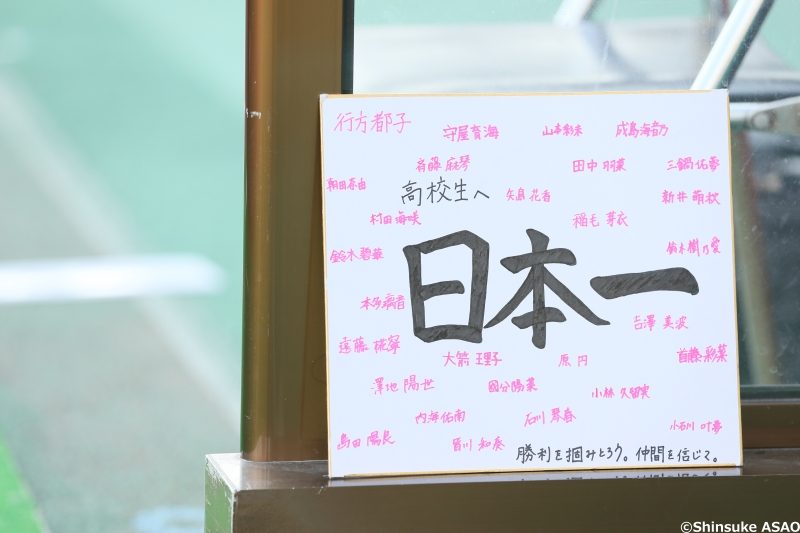 行方都子
守屋育海
山本彩未
成島海音乃
斉藤麻琴
田中羽菜
三鍋佑季
朝田春由
高校生へ
矢島花香
新井萌秋
村田海咲
稲毛芽衣
鈴木碧華
鈴木樹乃愛
日本一
本多璃音
吉澤美波
遠藤桃寧
大箭王理子
原円
首藤彩菜
澤地陽世
國分陽菜
小林久留実
内海佑南
石川琴春
小石川叶夢
島田陽良
皆川和奏
勝利を掴みとろう。仲間を信じて。
©Shinsuke ASAO